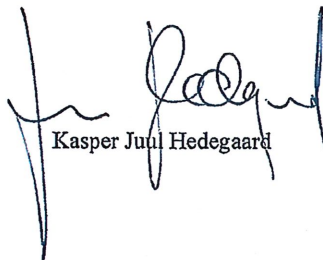 Kasper Juul Hedegaard